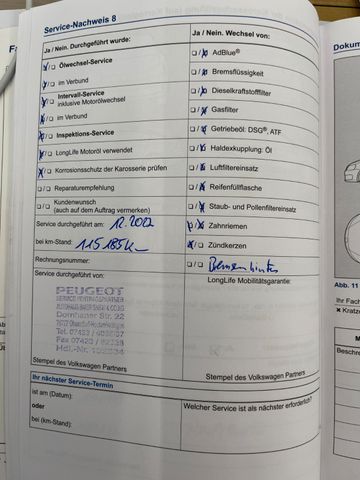 Service-Nachweis 8
Ja / Nein. Durchgeführt wurde:
Ölwechsel-Service
im Verbund
Intervall-Service
inklusive Motorölwechsel
im Verbund
Inspektions-Service
LongLife Motoröl verwendet
Korrosionsschutz der Karosserie prüfen
Reparaturempfehlung
Kundenwunsch
(auch auf dem Auftrag vermerken)
Service durchgeführt am: 12.2022
bei km-Stand: 115185k
Rechnungsnummer:
Service durchgeführt von:
PEUGEOT
Dornhaner Str. 22
Stempel des Volkswagen Partners
Ja / Nein. Wechsel von:
AdBlue®
Bremsflüssigkeit
Dieselkraftstofffilter
Gasfilter
Getriebeöl: DSG®, ATF
Haldexkupplung: Öl
Luftfiltereinsatz
Reifenfüllflasche
Staub- und Pollenfiltereinsatz
Zahnriemen
Zündkerzen
LongLife Mobilitätsgarantie:
Stempel des Volkswagen Partners
Ihr nächster Service-Termin
ist am (Datum):
oder
bei (km-Stand):
Welcher Service ist als nächster erforderlich?
Dokum
Abb. 11
Ihr Fach
x Kratze
M
Beschre